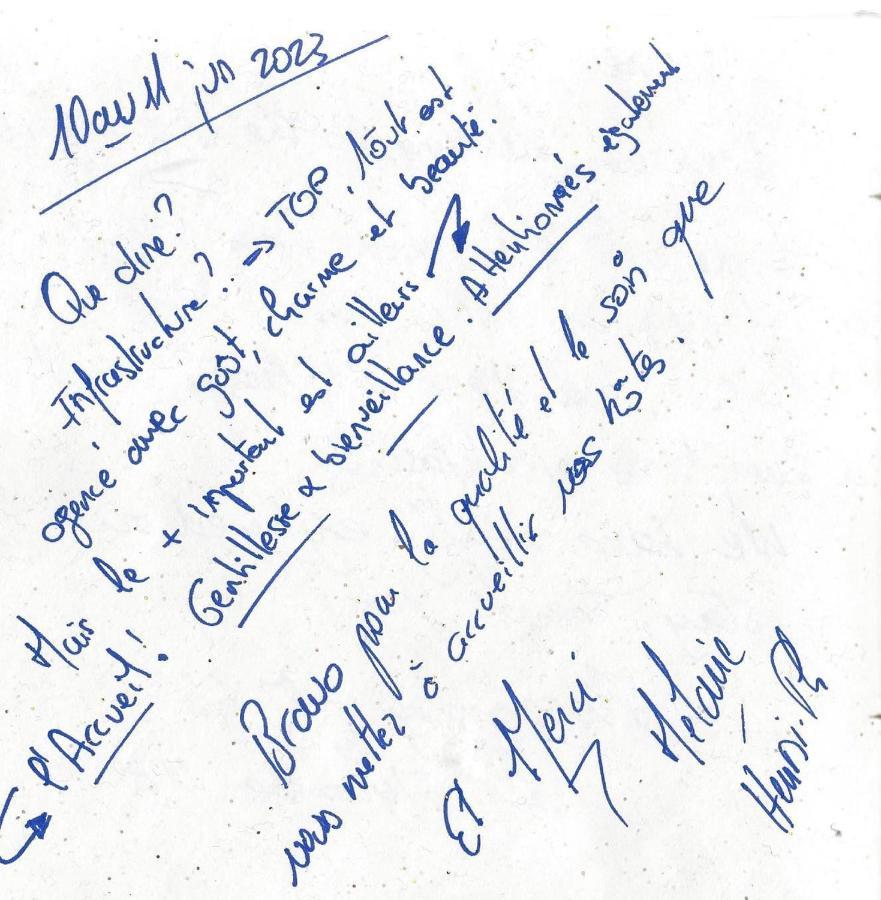 10 au 11 jun 2023
Que dire?
Infrastructure? .. => TOP, tout est
agencé avec goût, charme et beauté.
Mais le + important est ailleurs
↳ l'Accueil! Gentillesse & bienveillance. Attentionnés également
Bravo pour la qualité et le soin que
vous mettez à accueillir vos hôtes.
Et Merci
Mélanie
Henri-Ph